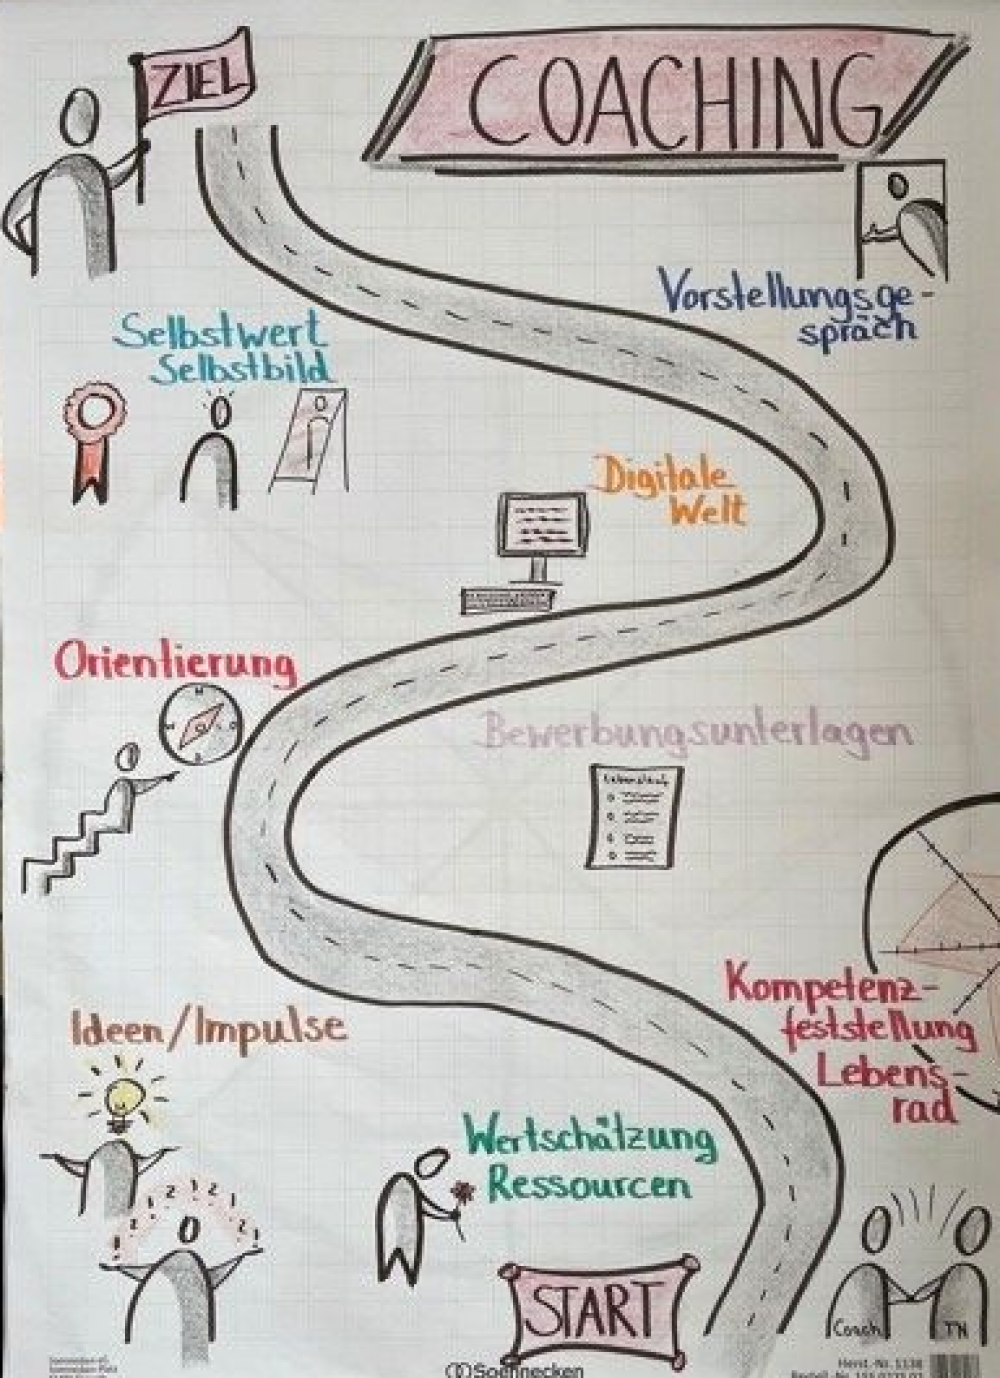 ZIEL
COACHING
Vorstellungsge-
spräch
Selbstwert
Selbstbild
Digitale
Welt
Orientierung
Bewerbungsunterlagen
Lebenslauf
Kompetenz-
feststellung
Lebens-
rad
Ideen/Impulse
Wertschätzung
Ressourcen
START
Coach
TN
Soennecken
Herst.-Nr. 1138